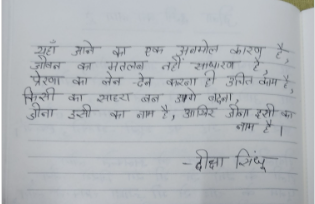 यहाँ आने का एक अनमोल कारण है,
जीवन का मतलब नहीं साधारण है,
प्रेरणा का लेन देन करना ही उचित काम है,
किसी का सहारा बन आगे बढ़ना,
जीना इसी का नाम है, आखिर जीना इसी का
नाम है।
- दीक्षा सिंधू